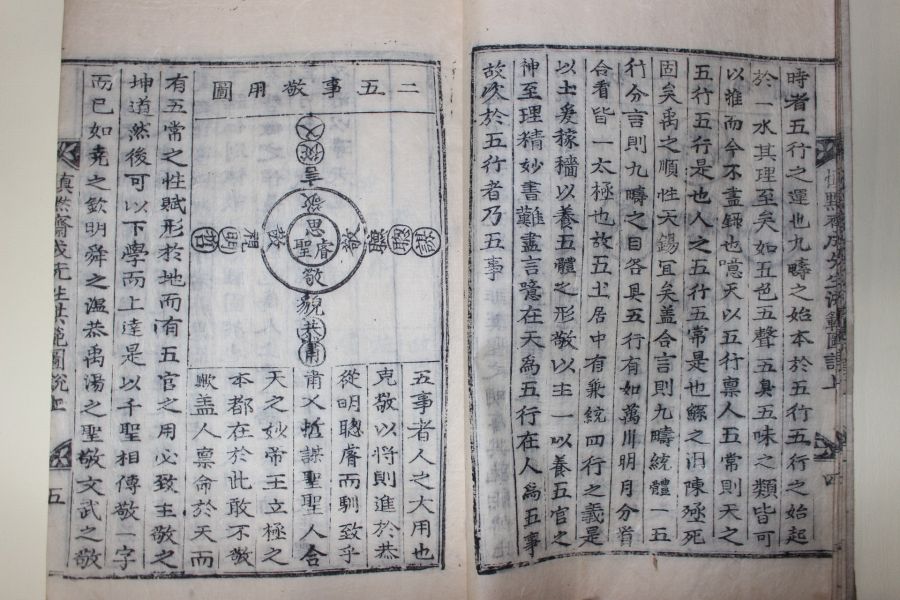 慎默齋成先生洪範圖說上 四
時者五行之運也九疇之始本於五行五行之始起
於一水其理至矣如五色五聲五臭五味之類皆可
以推而今不盡錄也噫天以五行稟人五常則天之
五行五行是也人之五行五常是也鯀之汩陳殛死
固矣禹之順性天錫宜矣盖合言則九疇統體一五
行分言則九疇之目各具五行有如萬川明月分
合看皆一太極也故五土居中有乘統四行之義是
以土爰稼穡以養五體之形敬以主一以養五官之
神至理精妙書難盡言噫在天爲五行在人爲五事
故次於五行者乃五事
二五事敬用圖
乂從言敬
謀聰聽敬
思睿聖敬
敬視明哲
貌恭肅
五事者人之大用也
克敬以將則進於恭
從明聰睿而馴致乎
肅乂哲謀聖聖人合
天之妙帝王立極之
本都在於此敢不敬
歟盖人禀命於天而
有五常之性賦形於地而有五官之用必致主敬之
坤道然後可以下學而上達是以千聖相傳敬一字
而已如堯之欽明舜之溫恭禹湯之聖敬文武之敬
慎默齋成先生洪範圖說上 五